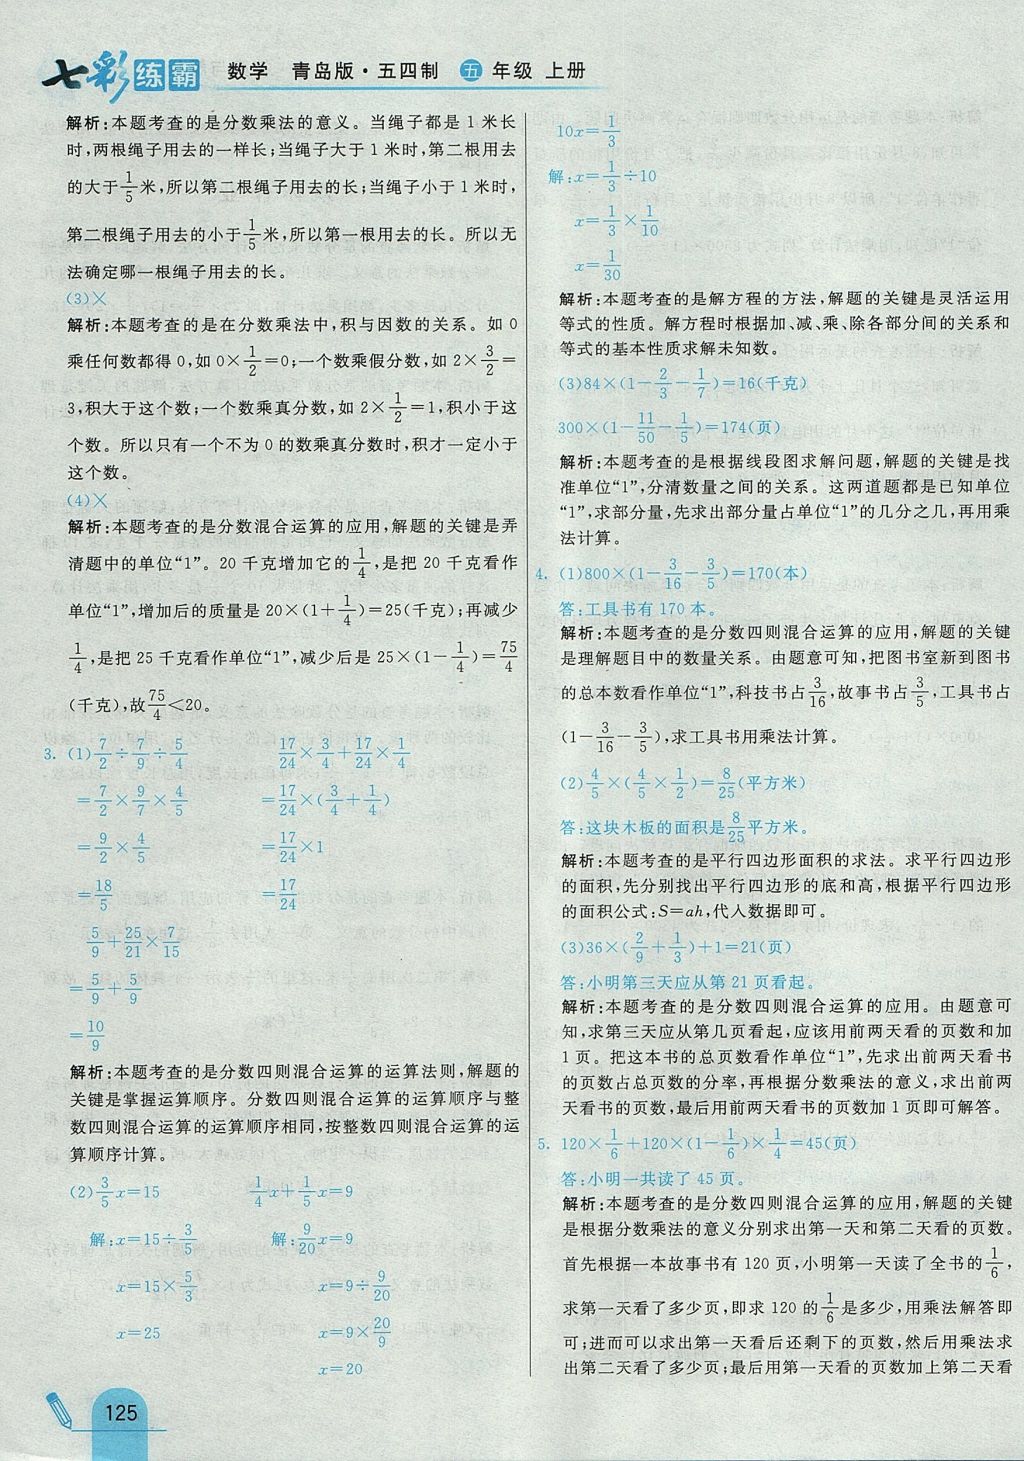 七彩练霸 数学 青岛版·五四制 五年级 上册
解析:本题考查的是分数乘法的意义。当绳子都是1米长
时,两根绳子用去的一样长;当绳子大于1米时,第二根用去
的大于1/5米,所以第二根绳子用去的长;当绳子小于1米时,
第二根绳子用去的小于1/5米,所以第一根用去的长。所以无
法确定哪一根绳子用去的长。
(3)×
解析:本题考查的是在分数乘法中,积与因数的关系。如0
乘任何数都得0,如0×1/2=0;一个数乘假分数,如2×3/2=
3,积大于这个数;一个数乘真分数,如2×1/2=1,积小于这
个数。所以只有一个不为0的数乘真分数时,积才一定小于
这个数。
(4)×
解析:本题考查的是分数混合运算的应用,解题的关键是弄
清题中的单位“1”。20千克增加它的1/4,是把20千克看作
单位“1”,增加后的质量是20×(1+1/4)=25(千克);再减少
1/4,是把25千克看作单位“1”,减少后是25×(1-1/4)=75/4
(千克),故75/4<20。
3. (1)7/2÷7/9÷5/4    17/24×3/4+17/24×1/4
=7/2×9/7×4/5    =17/24×(3/4+1/4)
=9/2×4/5    =17/24×1
=18/5    =17/24
5/9+25/21×7/15
=5/9+5/9
=10/9
解析:本题考查的是分数四则混合运算的运算法则,解题的
关键是掌握运算顺序。分数四则混合运算的运算顺序与整
数四则混合运算的运算顺序相同,按整数四则混合运算的运
算顺序计算。
(2)3/5x=15    1/4x+1/5x=9
解:x=15÷3/5    解:9/20x=9
x=15×5/3    x=9÷9/20
x=25    x=9×20/9
x=20
10x=1/3
解:x=1/3÷10
x=1/3×1/10
x=1/30
解析:本题考查的是解方程的方法,解题的关键是灵活运用
等式的性质。解方程时根据加、减、乘、除各部分间的关系和
等式的基本性质求解未知数。
(3)84×(1-2/3-1/7)=16(千克)
300×(1-11/50-1/5)=174(页)
解析:本题考查的是根据线段图求解问题,解题的关键是找
准单位“1”,分清数量之间的关系。这两道题都是已知单位
“1”,求部分量,先求出部分量占单位“1”的几分之几,再用乘
法计算。
4. (1)800×(1-3/16-3/5)=170(本)
答:工具书有170本。
解析:本题考查的是分数四则混合运算的应用,解题的关键
是理解题目中的数量关系。由题意可知,把图书室新到图书
的总本数看作单位“1”,科技书占3/16,故事书占3/5,工具书占
(1-3/16-3/5),求工具书用乘法计算。
(2)4/5×(4/5×1/2)=8/25(平方米)
答:这块木板的面积是8/25平方米。
解析:本题考查的是平行四边形面积的求法。求平行四边形
的面积,先分别找出平行四边形的底和高,根据平行四边形
的面积公式:S=ah,代人数据即可。
(3)36×(2/9+1/3)+1=21(页)
答:小明第三天应从第21页看起。
解析:本题考查的是分数四则混合运算的应用。由题意可
知,求第三天应从第几页看起,应该用前两天看的页数和加
1页。把这本书的总页数看作单位“1”,先求出前两天看书
的页数占总页数的分率,再根据分数乘法的意义,求出前两
天看书的页数,最后用前两天看书的页数加1页即可解答。
5. 120×1/6+120×(1-1/6)×1/4=45(页)
答:小明一共读了45页。
解析:本题考查的是分数四则混合运算的应用,解题的关键
是根据分数乘法的意义分别求出第一天和第二天看的页数。
首先根据一本故事书有120页,小明第一天读了全书的1/6,
求第一天看了多少页,即求120的1/6是多少,用乘法解答即
可;进而可以求出第一天看后还剩下的页数,然后用乘法求
出第二天看了多少页;最后用第一天看的页数加上第二天看
125